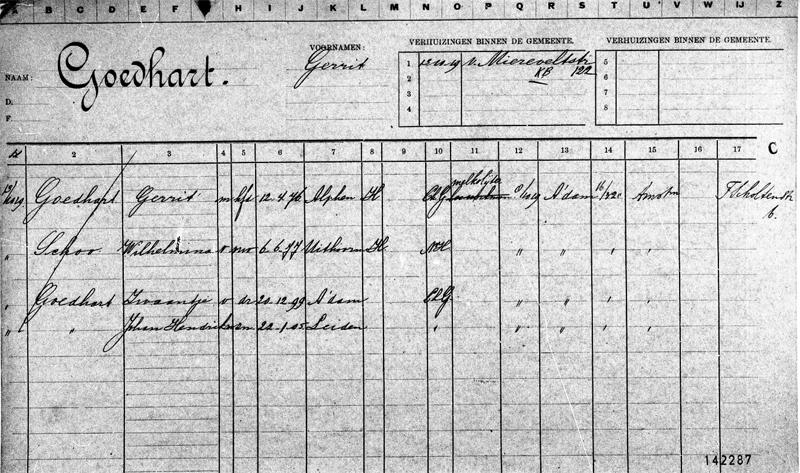 A B C D E F G H I J K L M N O P Q R S T U V W IJ Z
NAAM: Goedhart.
D.
F.
VOORNAMEN:
Gerrit
VERHUIZINGEN BINNEN DE GEMEENTE.
1 v. Miereveltstr
2 KB 122
3
4
VERHUIZINGEN BINNEN DE GEMEENTE.
5
6
7
8
2 3 4 5 6 7 8 9 10 11 12 13 14 15 16 17 C
Goedhart Gerrit m hfd 12.4.76 Alphen H Ch G A'dam Amstm
6.
" Schoo Wilhelmina v 6.6.77 Uithoorn H NH " " " "
" Goedhart Zwaantje v dr 20.12.99 A'dam Ch G " " " "
" " Johan Hendrik m zn 22.1.05 Leiden " " " " "
142287